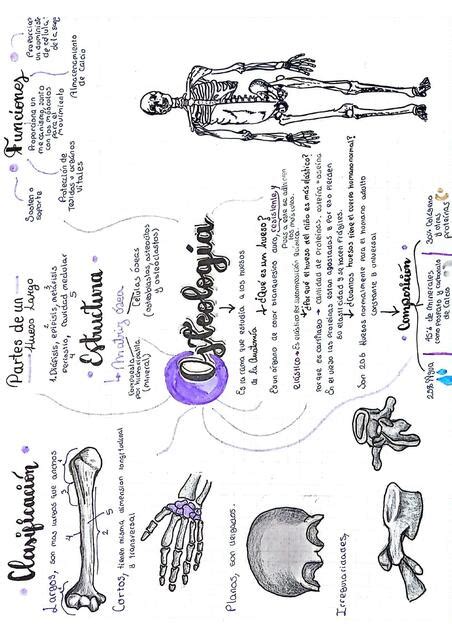 Clasificación
Largos, son mas largos que anchos
4
3
4
2
5
Cortos, tienen misma dimension longitudinal
y transversal
Planas, son delgados.
Irregularidades,
Partes de un
Hueso Largo
1. Diáfisis, epífisis, metáfisis
2
3
Periostio, cavidad medular
4
5
Estructura
Matriz ósea
Compuesta
por hidroxiapatita
(mineral)
Células óseas
(osteoblastos, osteocitos
y osteoclastos)
Osteología
Es la rama que estudia a los huesos
de la anatomía
¿Qué es un hueso?
Es un órgano de color blanquecino, duro, resistente y
los músculos
Elástico → Es elástico por su composición química.
¿Por qué el hueso del niño es más elástico?
Porque es cartílago → cantidad de proteínas. osteína → oseína
En el viejo las proteínas están agostados y por eso pierden
su elasticidad y se hacen frágiles.
¿Cuantos huesos tiene el cuerpo humano normal?
Son 206 huesos normalmente para el humano adulto
constante y universal
Composición
25% Agua
45% de minerales
como fosfato y carbonato
de calcio
30% Colágeno
y otras
proteínas
Funciones
Sosten o
soporte
Protección de
tejidos u organos
vitales
Proporciona un
mecanismo, junto
con los músculos
para el
movimiento
Almacenamiento
de calcio
Proporcion
un suministro
de células
de la sangre